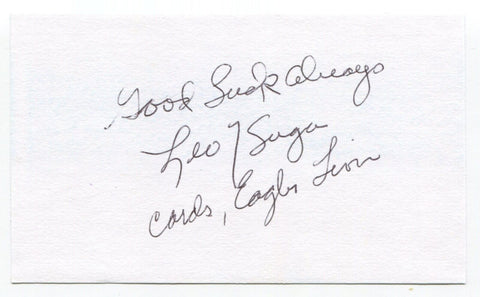 Good Luck Always
Leo J Sugar
Cards, Eagles Lions